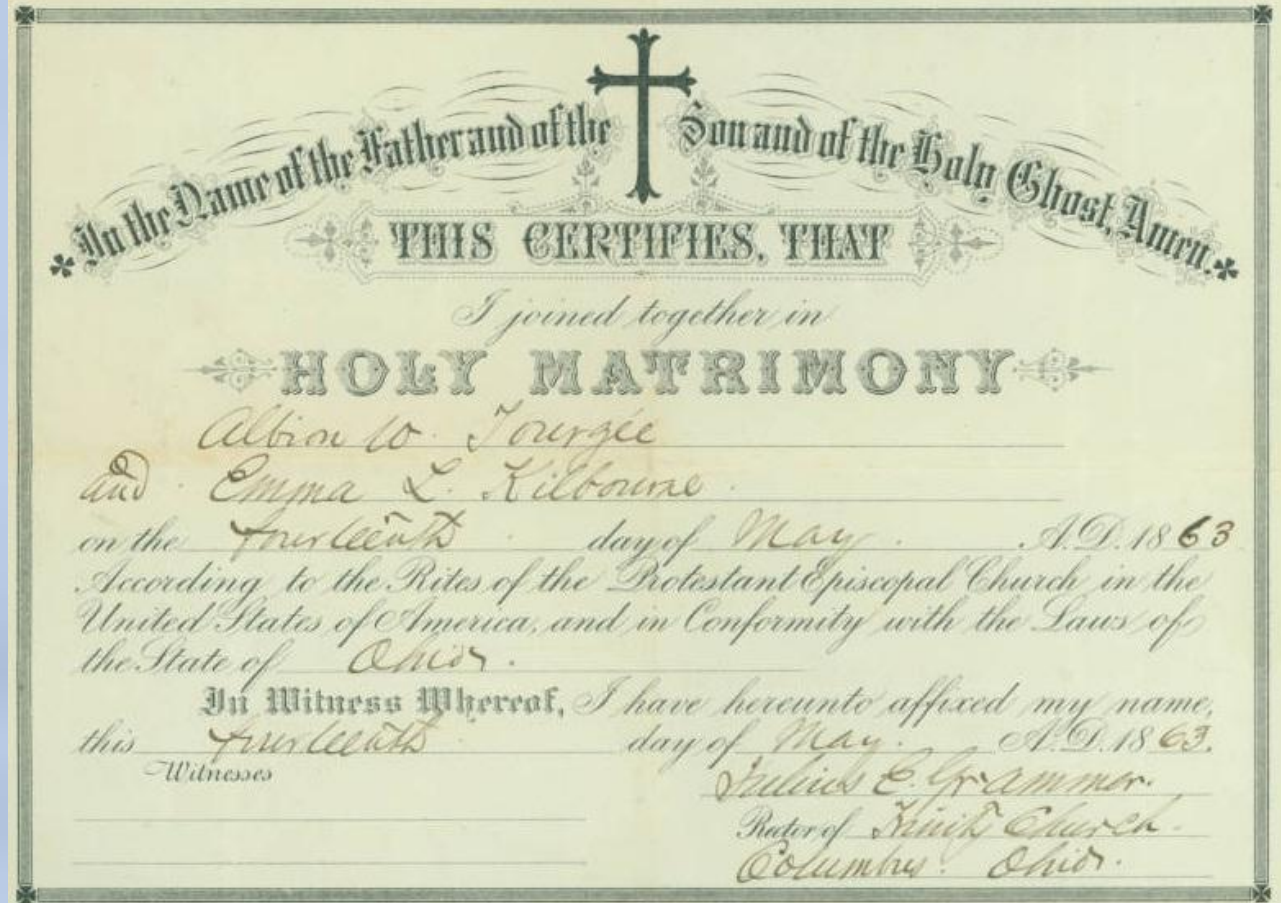 In the Name of the Father and of the Son and of the Holy Ghost, Amen.
THIS CERTIFIES, THAT
I joined together in
HOLY MATRIMONY
Albion W. Tourgée
and Emma L. Kilbourne.
on the fourteenth day of May. A.D. 1863
According to the Rites of the Protestant Episcopal Church in the
United States of America, and in Conformity with the Laws of
the State of Ohio.
In Witness Whereof, I have hereunto affixed my name,
this fourteenth day of May. A.D. 1863.
Witnesses
Julius E. Grammer.
Rector of Trinity Church.
Columbus. Ohio.